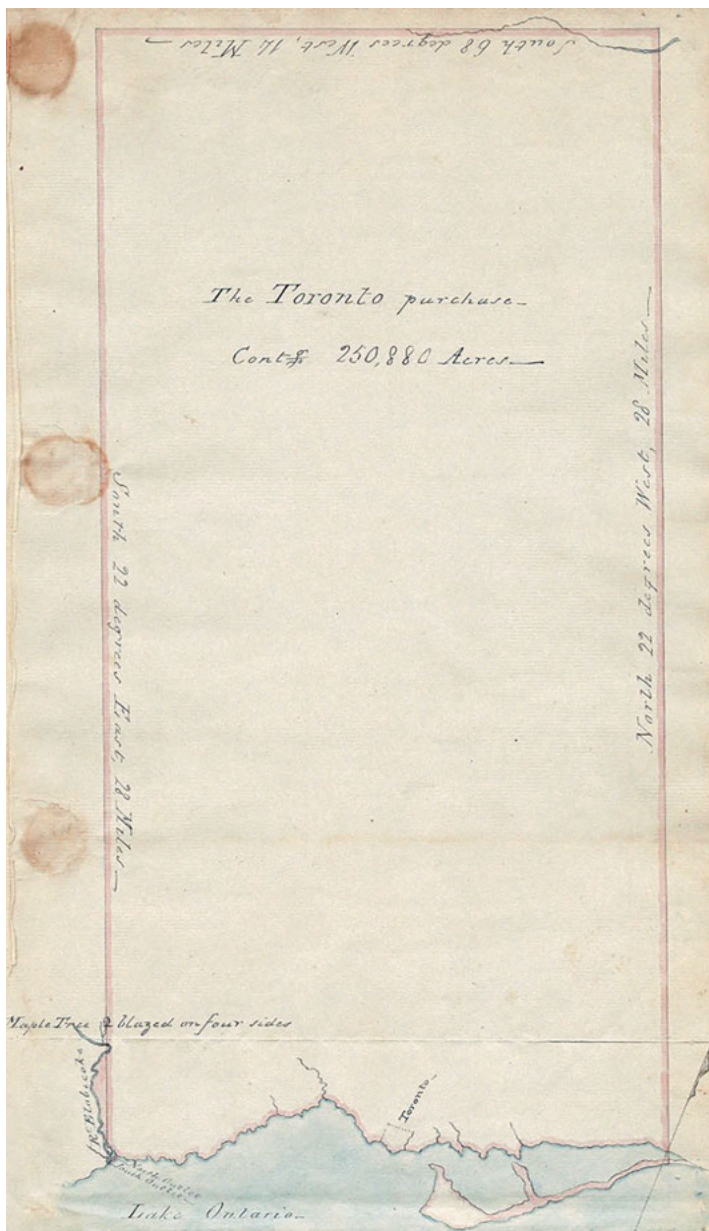 South 68 degrees West, 14 Miles
The Toronto purchase
Cont.g 250,880 Acres
North 22 degrees West, 28 Miles
South 22 degrees East, 28 Miles
Maple Tree blazed on four sides
Toronto
Lake Ontario